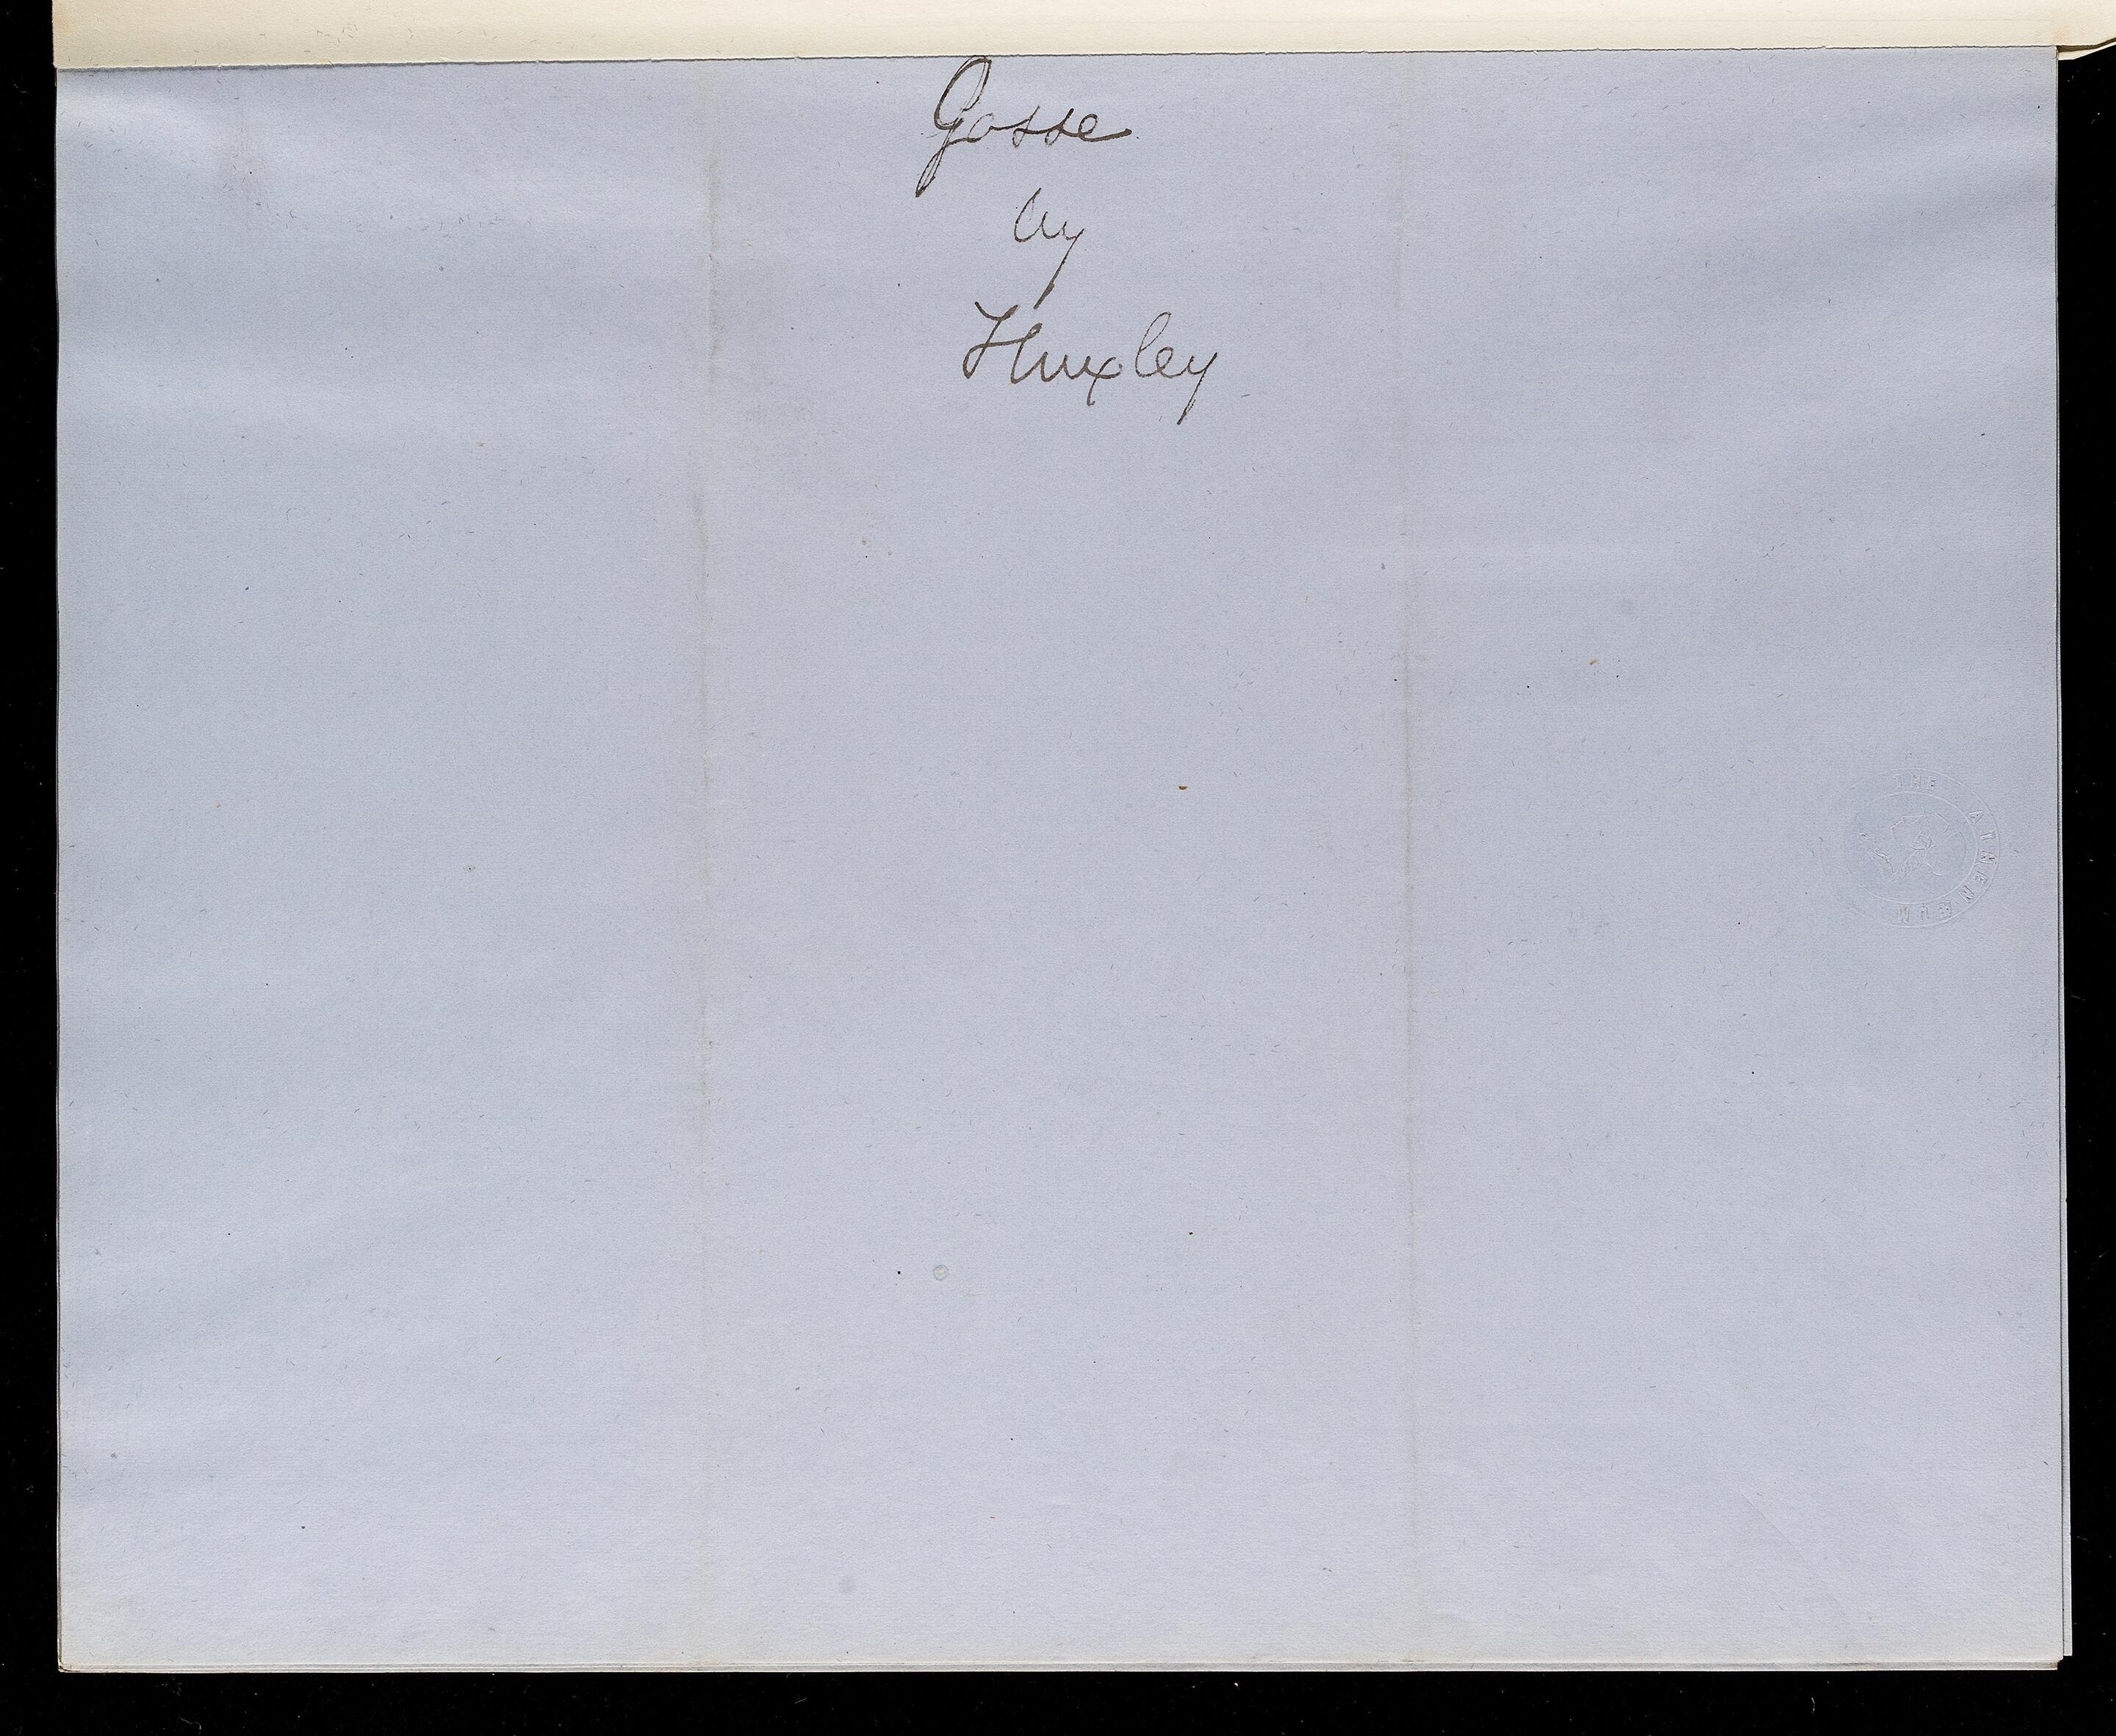 Gosse
by
Huxley
THE ATHENEUM